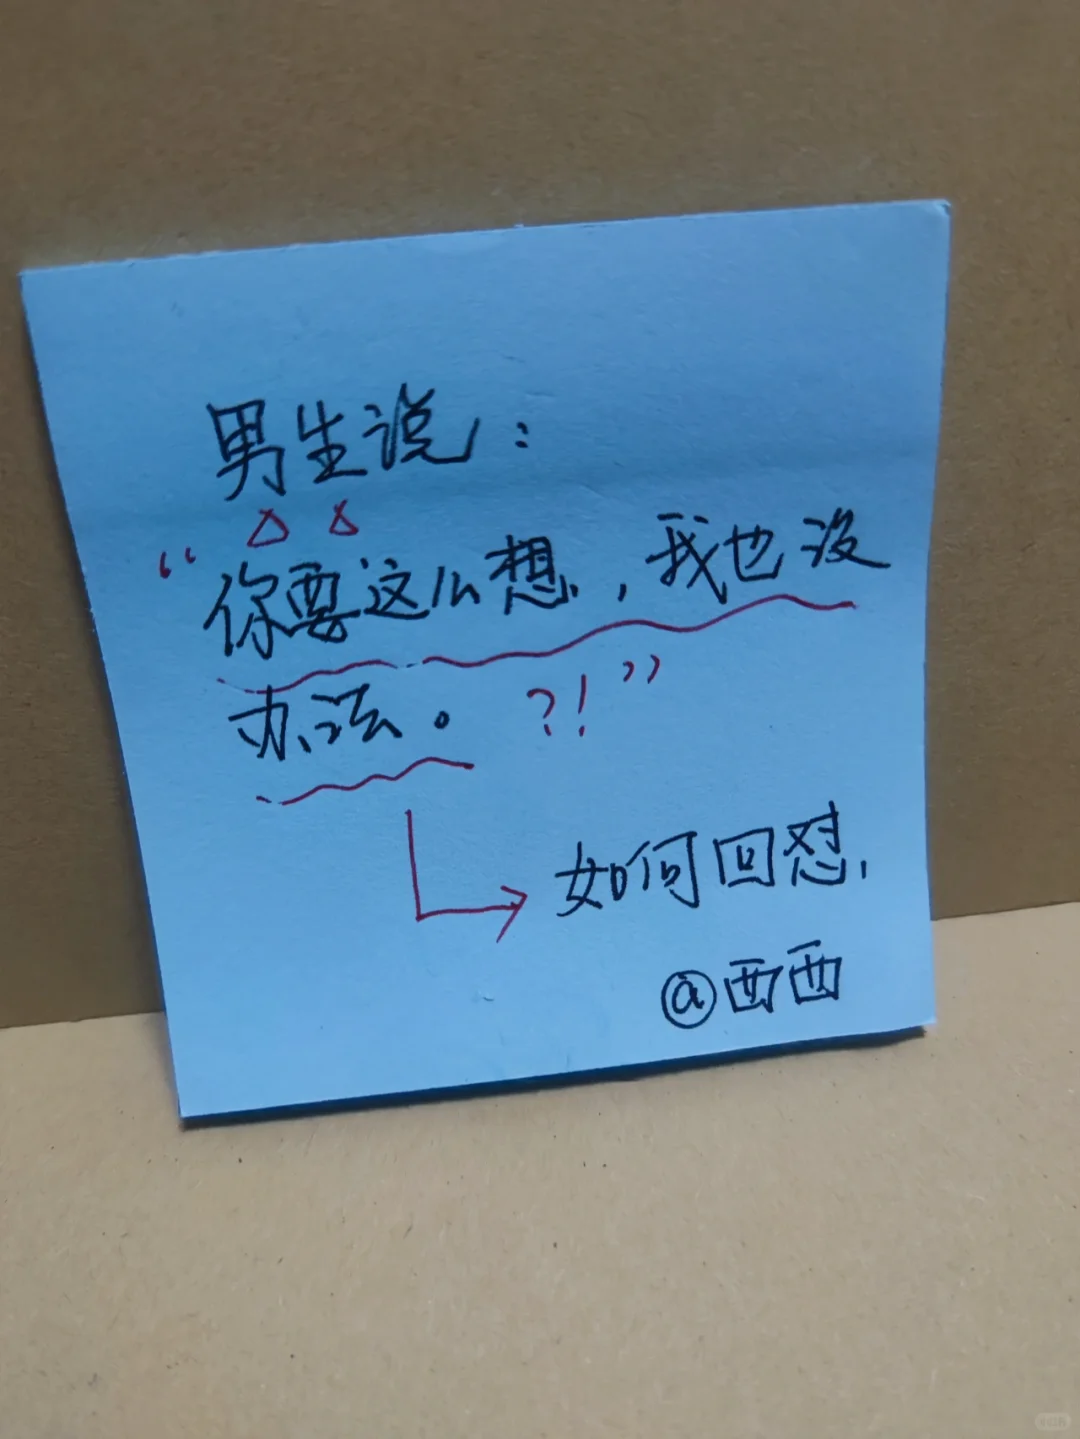 男生说：
“你要这么想，我也没
办法。?!”
如何回怼,
@西西